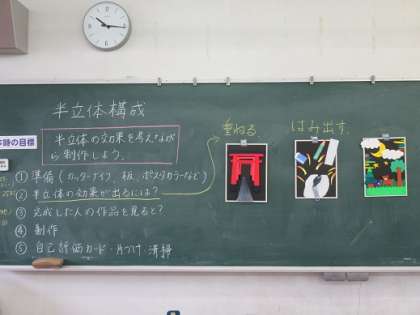 半立体構成
本時の目標
半立体の効果を考えながら
制作しよう。
① 準備(カッターナイフ、板、ポスターカラーなど)
② 半立体の効果が出るには?
③ 完成した人の作品を見ると?
④ 制作
⑤ 自己評価カード・片づけ・清掃
重ねる
はみ出す